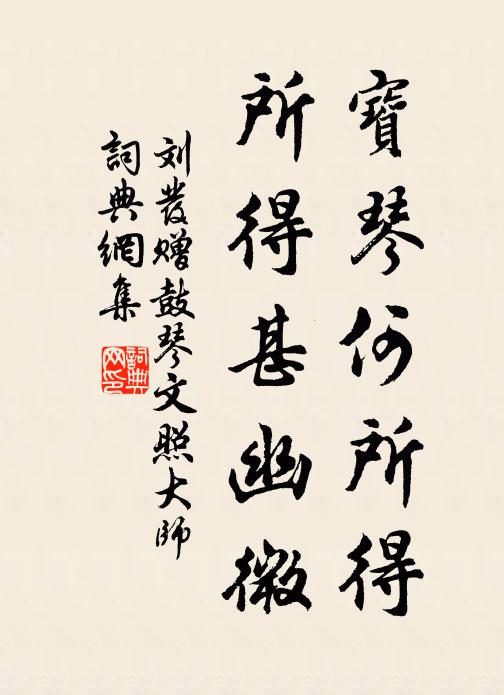 寶琴何所得
所得甚幽微
刘發赠鼓琴文照大师
詞典網集
詞典网印